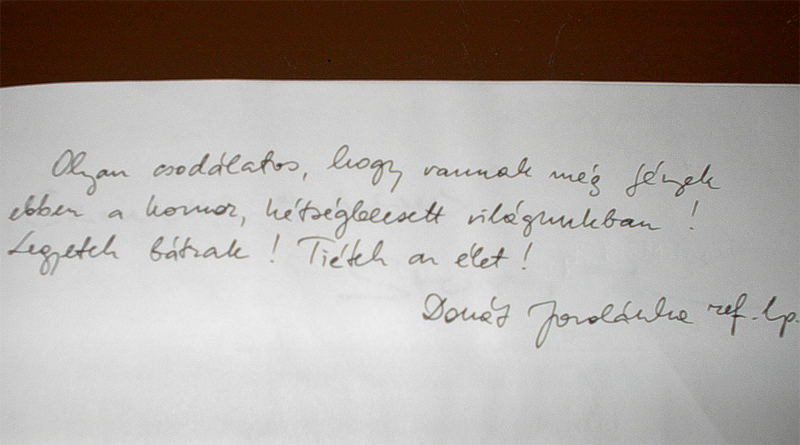 Olyan csodálatos, hogy vannak még fények
ebben a komor, kétségbeesett világunkban!
Legyetek bátrak! Tiétek az élet!
Donát ref. lp.